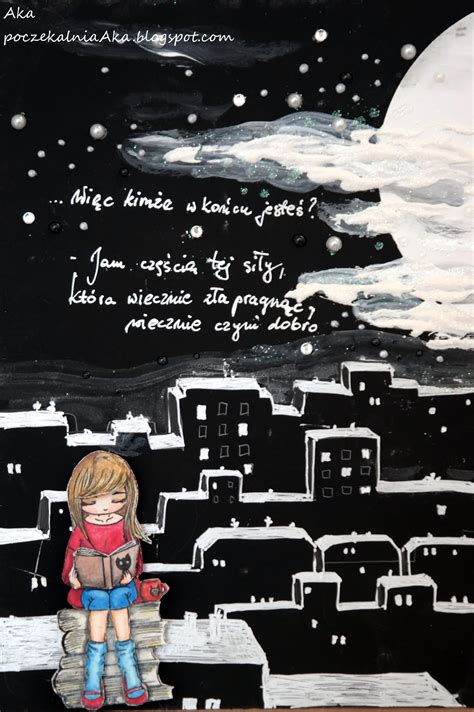 Aka
poczekalniaAka.blogspot.com
... Więc kimże w końcu jesteś?
- Jam częścią tej siły,
która wiecznie zła pragnąc,
wiecznie czyni dobro